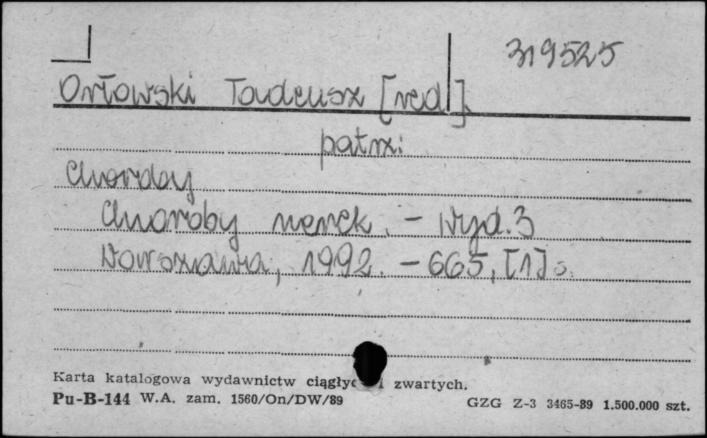 319525
Orłowski Tadeusz [red].
patrz:
Choroby
Choroby nerek. - Wyd. 3
Warszawa, 1992. - 665, [1] s.
Karta katalogowa wydawnictw ciągłyc i zwartych.
Pu-B-144 W.A. zam. 1560/On/DW/89 GZG Z-3 3465-89 1.500.000 szt.